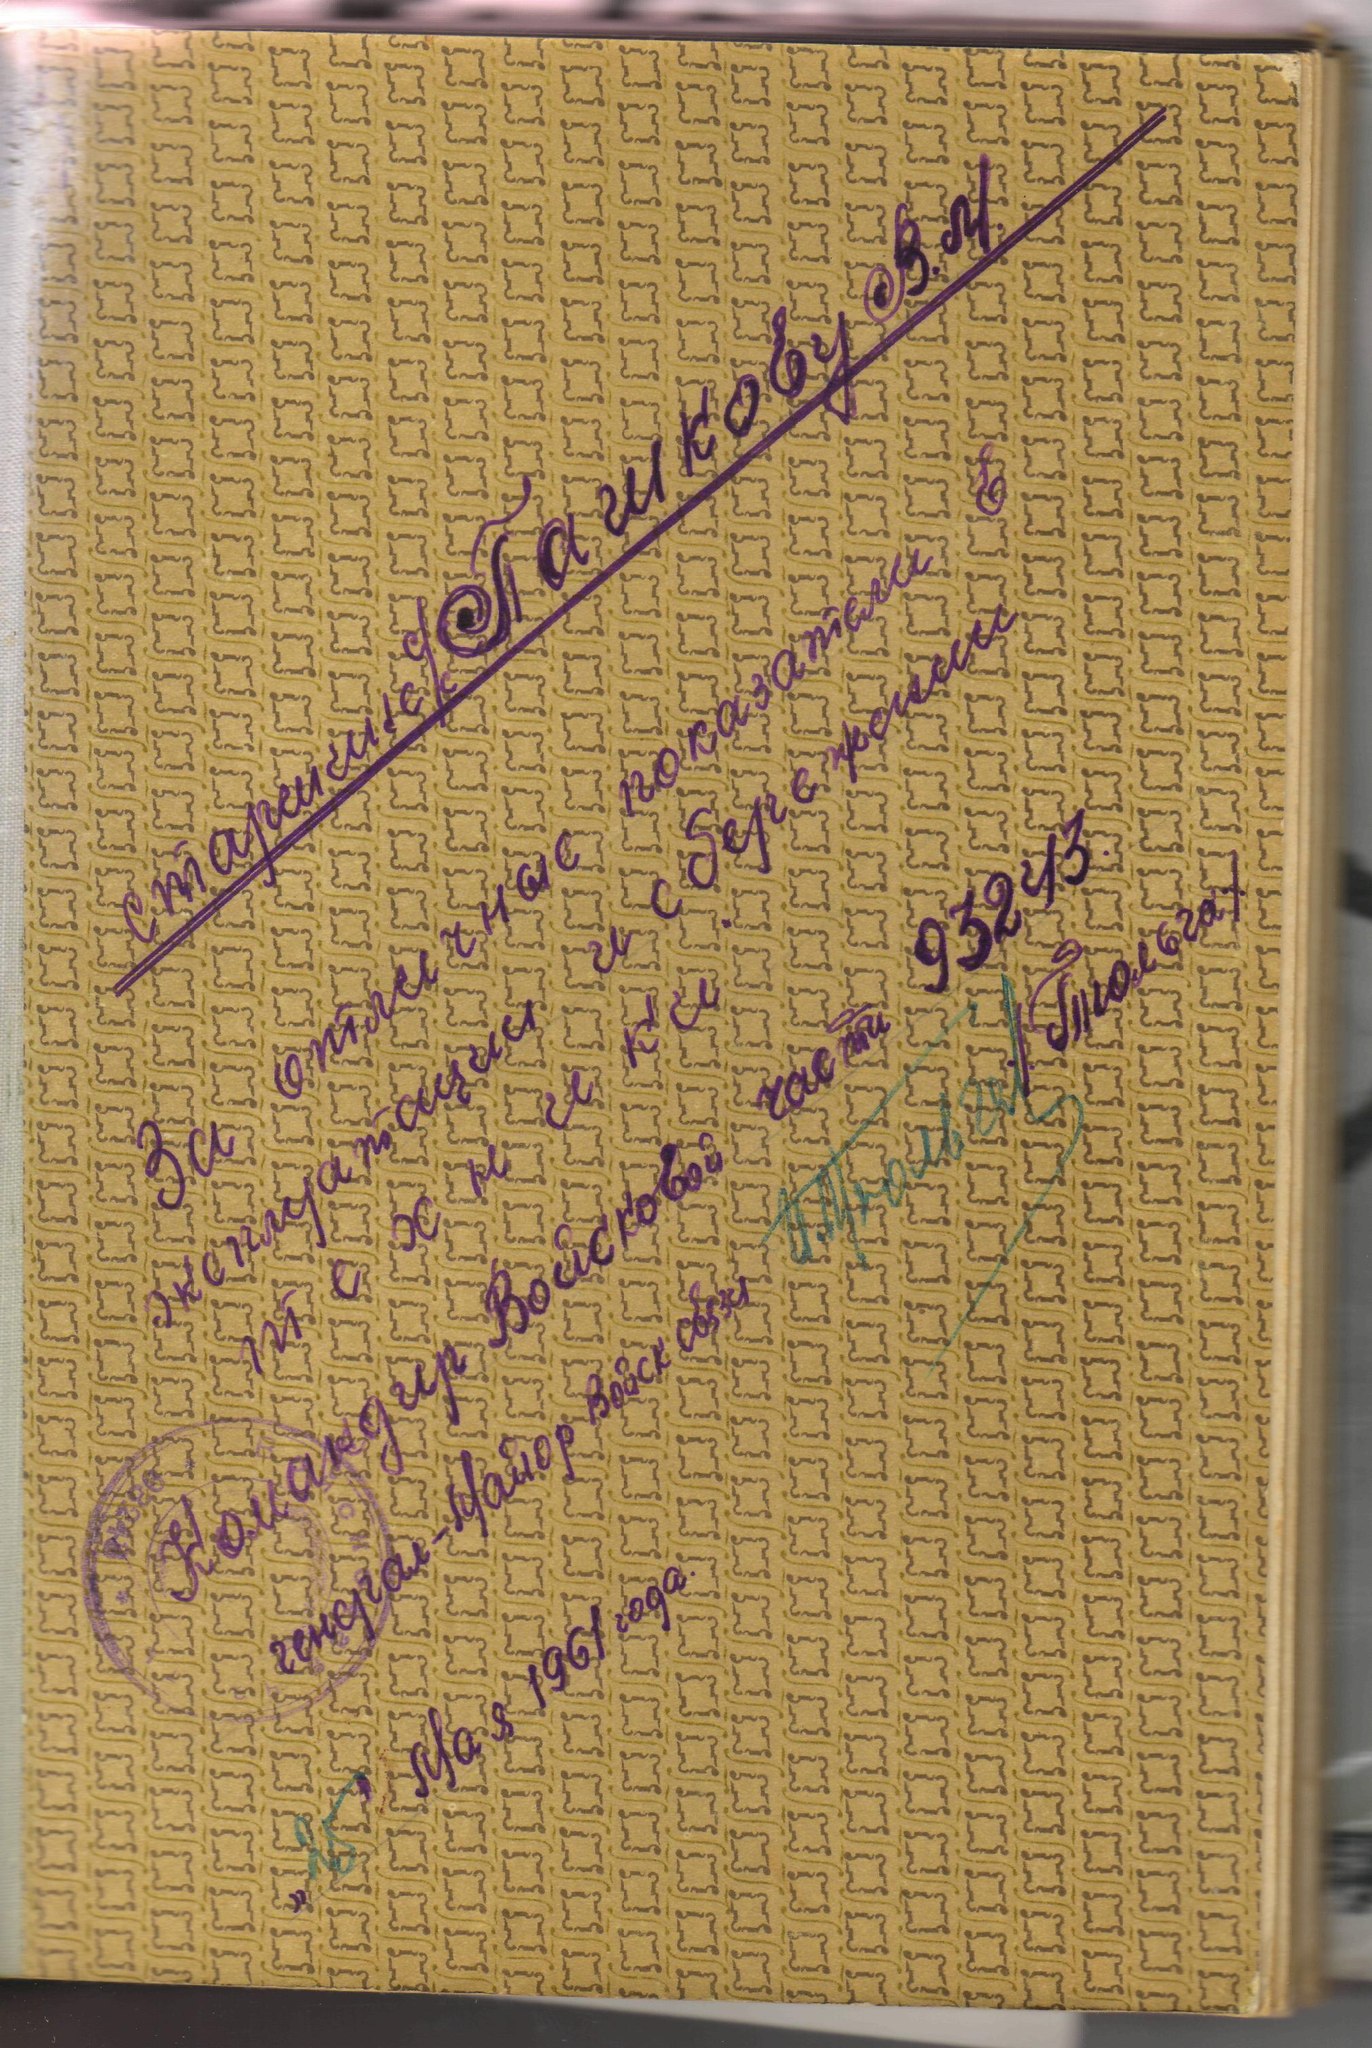 старшине Пашкову В.М.
За отличные показатели в
эксплуатации и сбережении
техники.
Командир Войсковой части 93243.
генерал-майор войск связи /Тюльга/.
"25" Мая 1961 года.